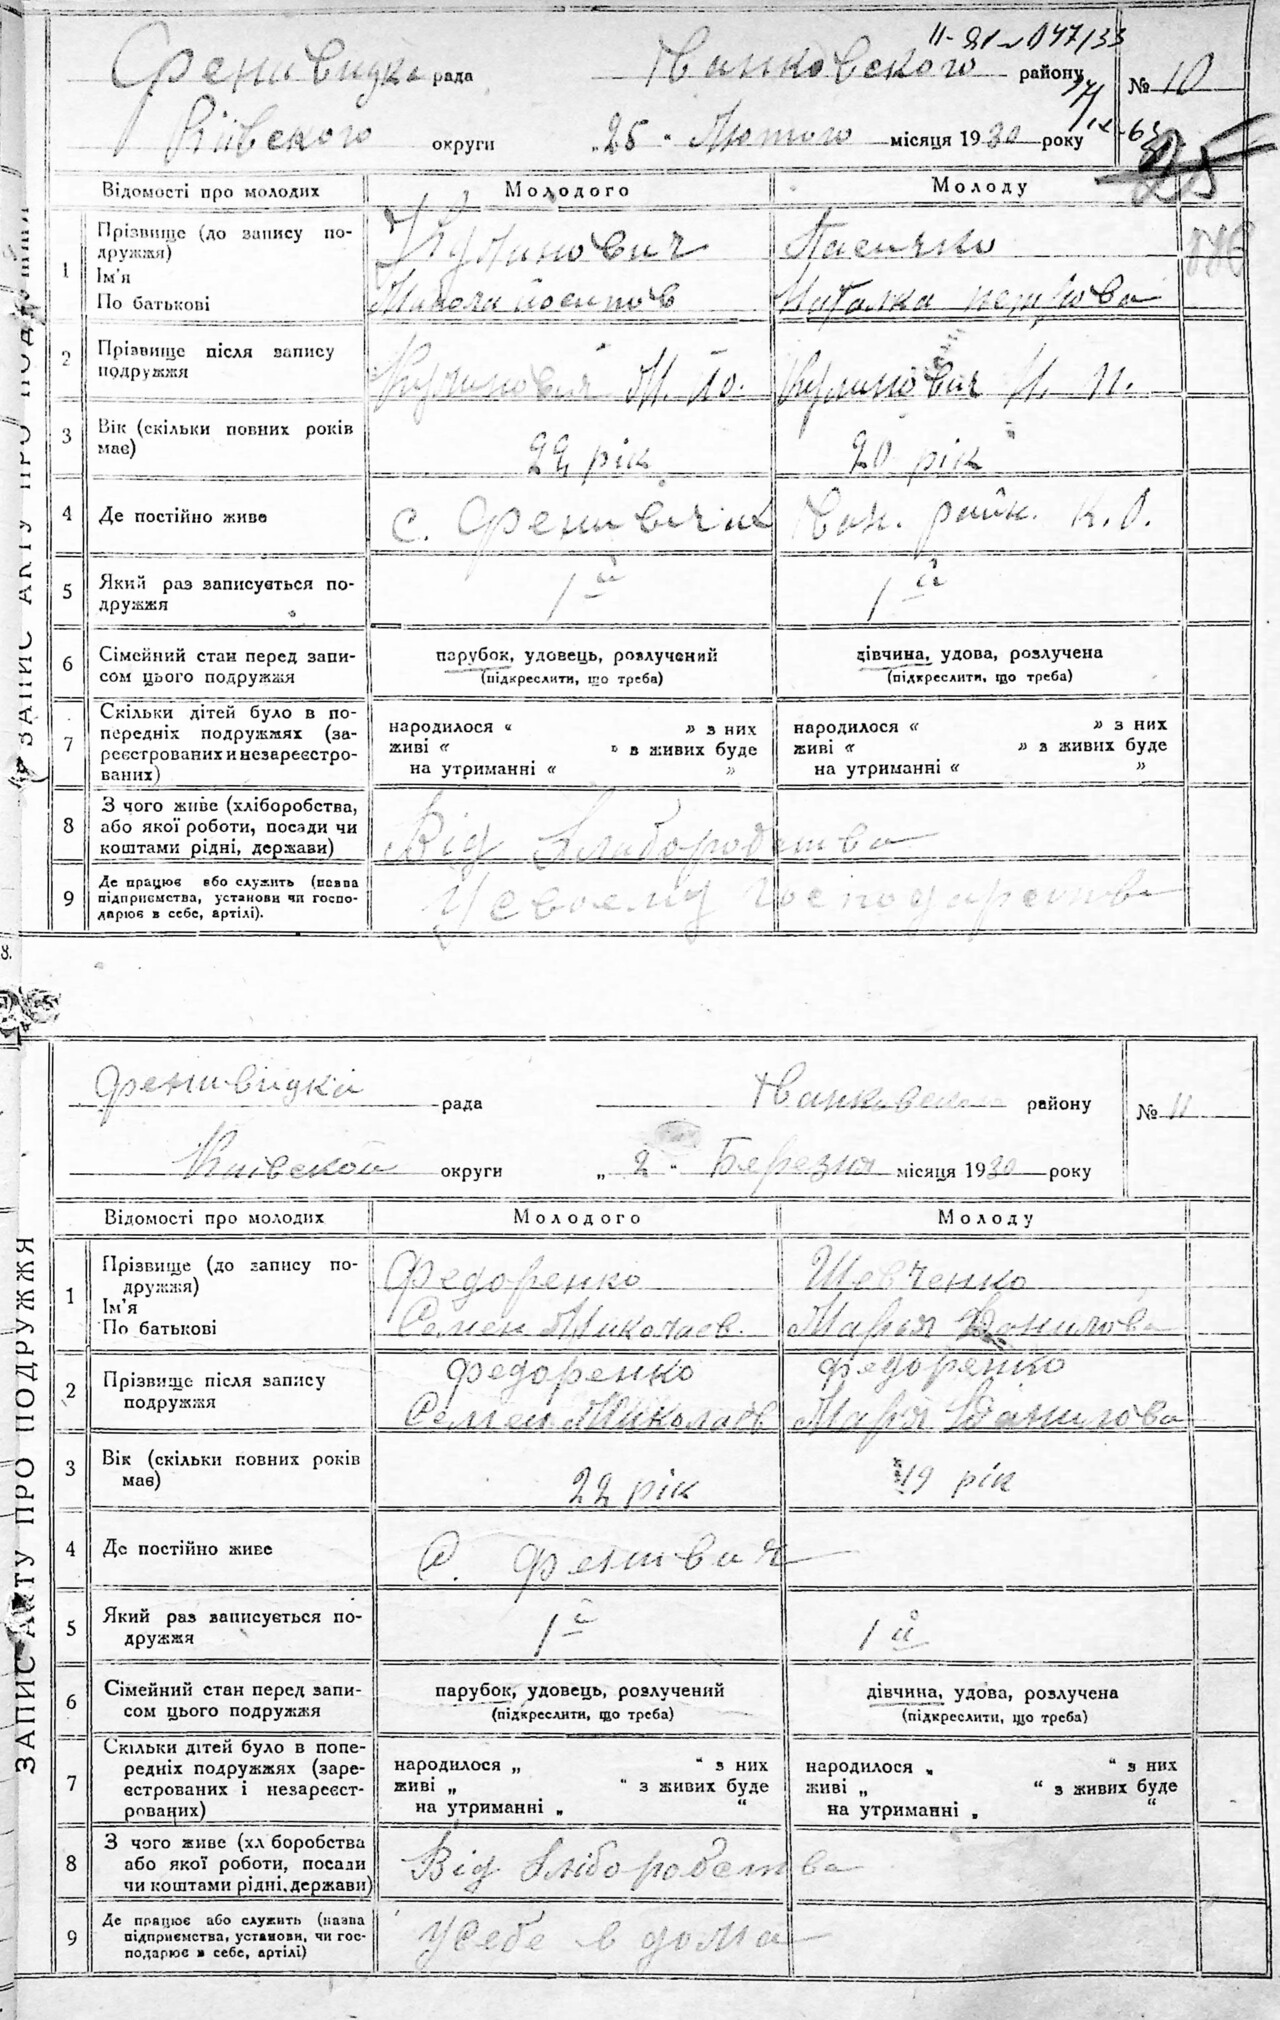 рада Іванковского району № 10
Київского округи „25“ Лютого місяця 1930 року
25
Відомості про молодих Молодого Молоду
1 Прізвище (до запису по-
дружжя)
Ім'я
По батькові
Кулинович Пасічко
Микола Йосипов Наталка Петрова
2 Прізвище після запису
подружжя
Кулинович М. Йо. Кулинович Н. П.
3 Вік (скільки повних років
має)
22 рік 20 рік
4 Де постійно живе с. Феневичах Іван. райн. К. О.
5 Який раз записується по-
дружжя
1й 1й
6 Сімейний стан перед запи-
сом цього подружжя
парубок, удовець, розлучений дівчина, удова, розлучена
(підкреслити, що треба) (підкреслити, що треба)
7 Скільки дітей було в по-
передніх подружжях (за-
реєстрованих и незареєстро-
ваних)
народилося « » з них народилося « » з них
живі « » в живих буде живі « » з живих буде
на утриманні « » на утриманні « »
8 З чого живе (хліборобства,
або якої роботи, посади чи
коштами рідні, держави)
Від хліборобства
9 Де працює або служить (назва
підприємства, установи чи госпо-
дарює в себе, артілі).
У своєму господарстві
ЗАПИС АКТУ ПРО ПОДРУЖЖЯ
рада Іванковского району № 11
Київской округи „2“ Березня місяця 1930 року
Відомості про молодих Молодого Молоду
1 Прізвище (до запису по-
дружжя)
Ім'я
По батькові
Федоренко Шевченко
Семен Миколаєв Марья Данилова
2 Прізвище після запису
подружжя
Федоренко Федоренко
Семен Миколаєв Марья Данилова
3 Вік (скільки повних років
має)
22 рік 19 рік
4 Де постійно живе с. Феневич
5 Який раз записується по-
дружжя
1й 1й
6 Сімейний стан перед запи-
сом цього подружжя
парубок, удовець, розлучений дівчина, удова, розлучена
(підкреслити, що треба) (підкреслити, що треба)
7 Скільки дітей було в попе-
редніх подружжях (заре-
єстрованих і незареєст-
рованих)
народилося „ “ з них народилося „ “ з них
живі „ “ з живих буде живі „ “ з живих буде
на утриманні „ “ на утриманні „ “
8 З чого живе (хл боробства
або якої роботи, посади
чи коштами рідні, держави)
Від хліборобства
9 Де працює або служить (назва
підприємства, установи, чи гос-
подарює в себе, артілі)
У себе в дома
ЗАПИС АКТУ ПРО ПОДРУЖЖЯ